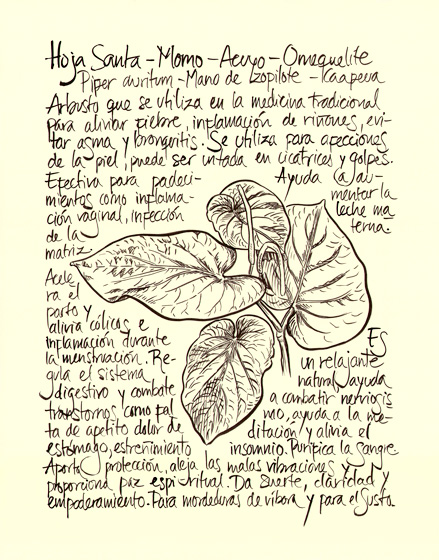 Hoja Santa - Momo - Acuyo - Omequelite
Piper auritum - Mano de Zopilote - Kaapeua
Arbusto que se utiliza en la medicina tradicional
para aliviar fiebre, inflamación de riñones, evi-
tar asma y bronquitis. Se utiliza para afecciones
de la piel, puede ser untada en cicatrices y golpes.
Efectiva para padeci-
mientos como inflama-
ción vaginal, infección
de la
matriz.
Ayuda a au-
mentar la
leche ma
terna.
Acele
ra el
parto y
alivia cólicos e
inflamación durante
la menstruación. Re-
gula el sistema
digestivo y combate
trastornos como fal
ta de apetito dolor de
estómago, estreñimiento
Es
un relajante
natural, ayuda
a combatir nerviosis
mo, ayuda a la me-
ditación y alivia el
insomnio. Purifica la sangre.
Aporta protección, aleja las malas vibraciones y
proporciona paz espiritual. Da suerte, claridad y
empoderamiento. Para mordeduras de víbora y para el susto.